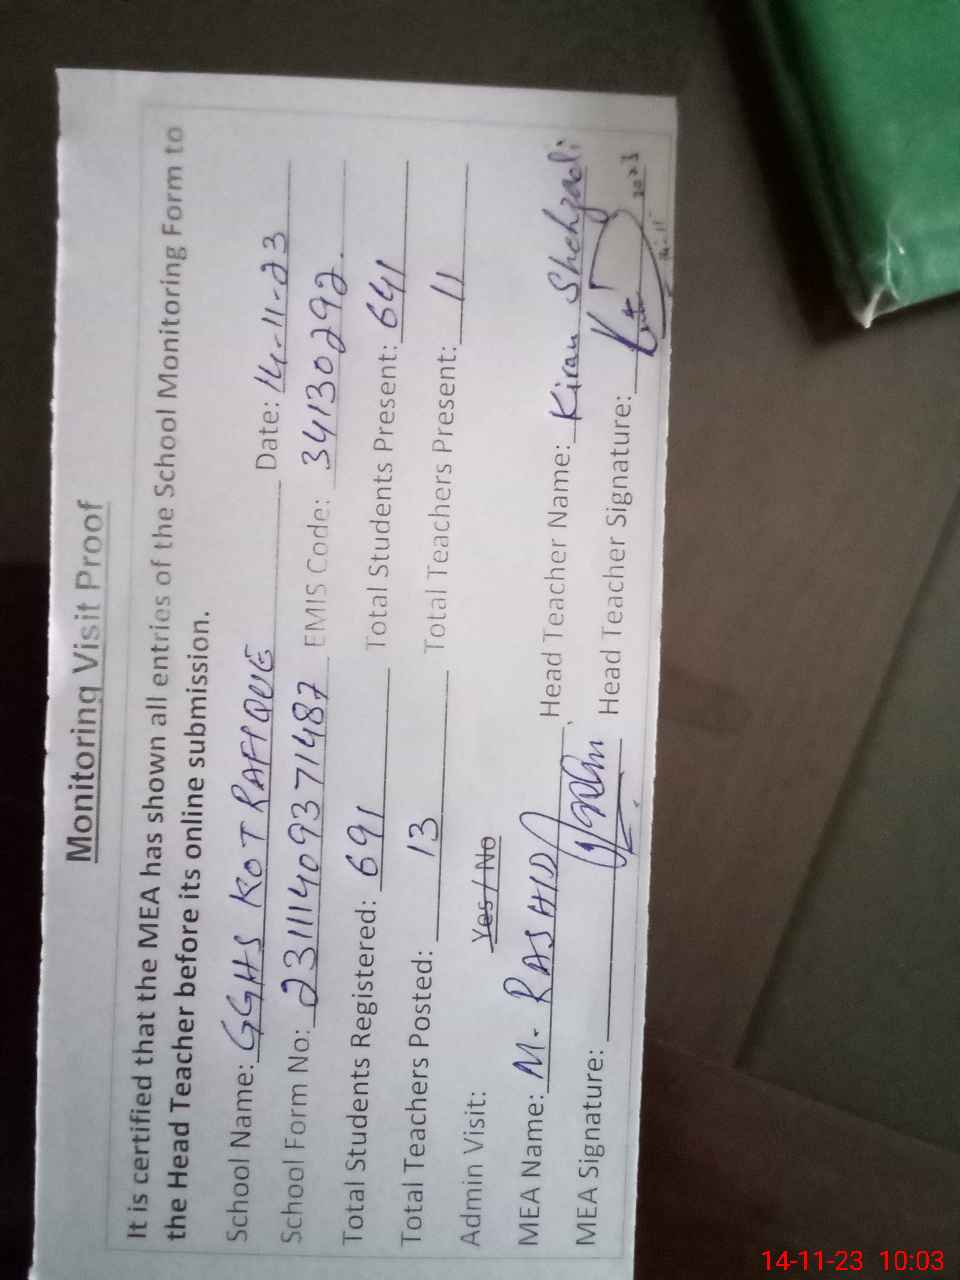 Monitoring Visit Proof
It is certified that the MEA has shown all entries of the School Monitoring Form to
the Head Teacher before its online submission.
School Name: GGHS KOT RAFIQUE Date: 14-11-23
School Form No: 23111409371487 EMIS Code: 34130292.
Total Students Registered: 691 Total Students Present: 641
Total Teachers Posted: 13 Total Teachers Present: 11
Admin Visit: Yes / No
MEA Name: M. RASHID, Head Teacher Name: Kiran Shehzadi
MEA Signature: Head Teacher Signature:
14-11-23 10:03